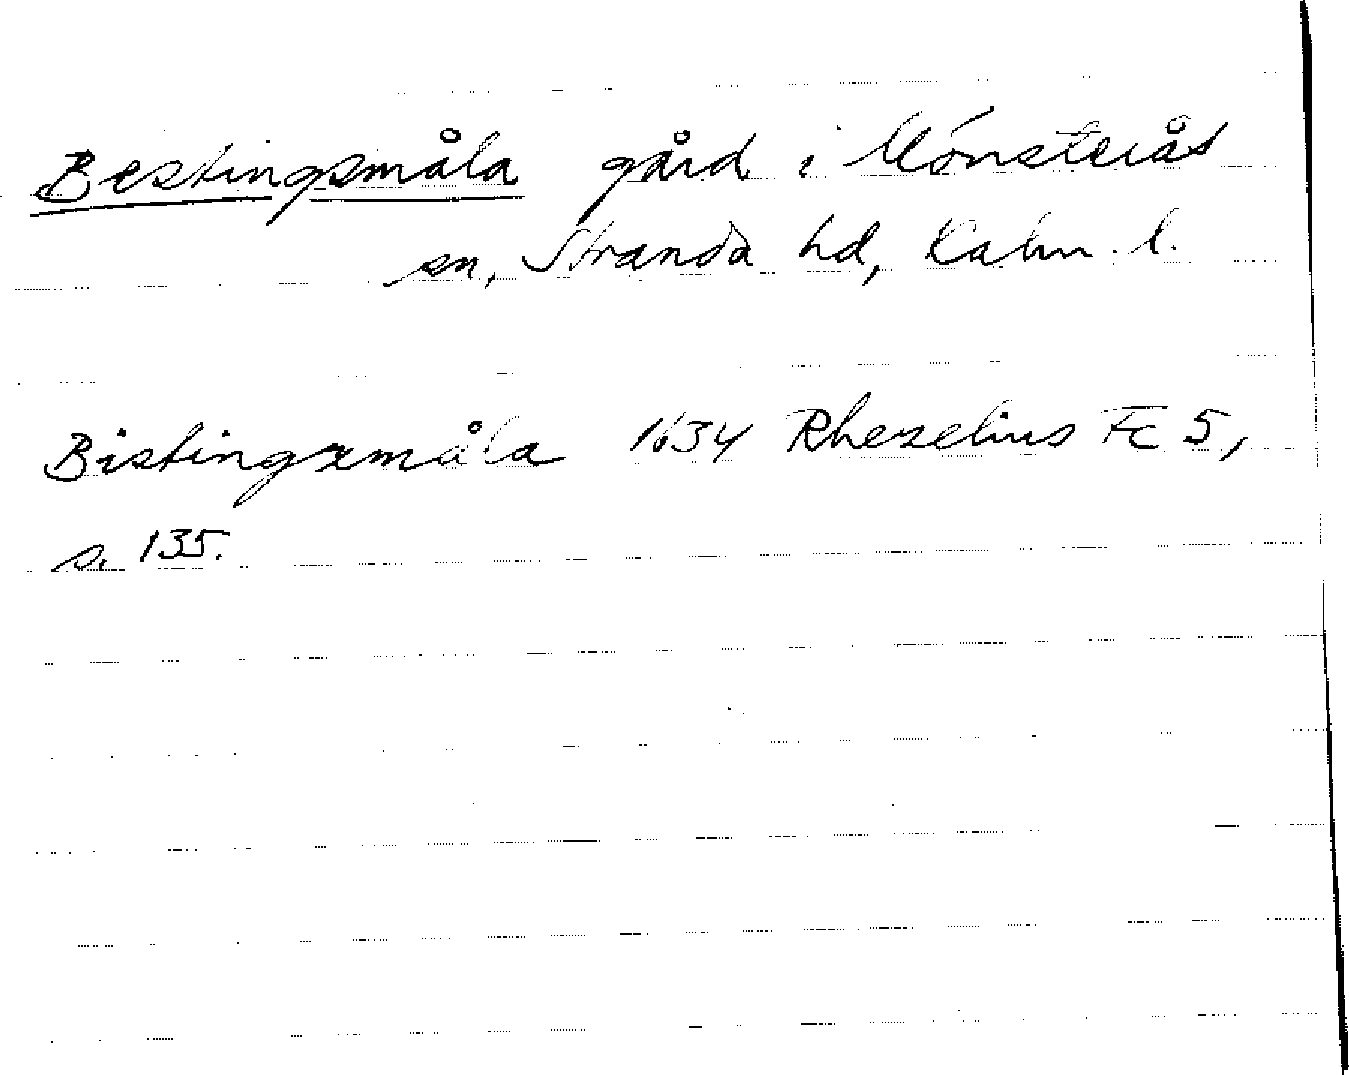 Bestingsmåla gård i Mönsterås
sn, Stranda hd, Kalm. l.
Bistingxmåla 1634 Rhezelius Fc 5,
s. 135.